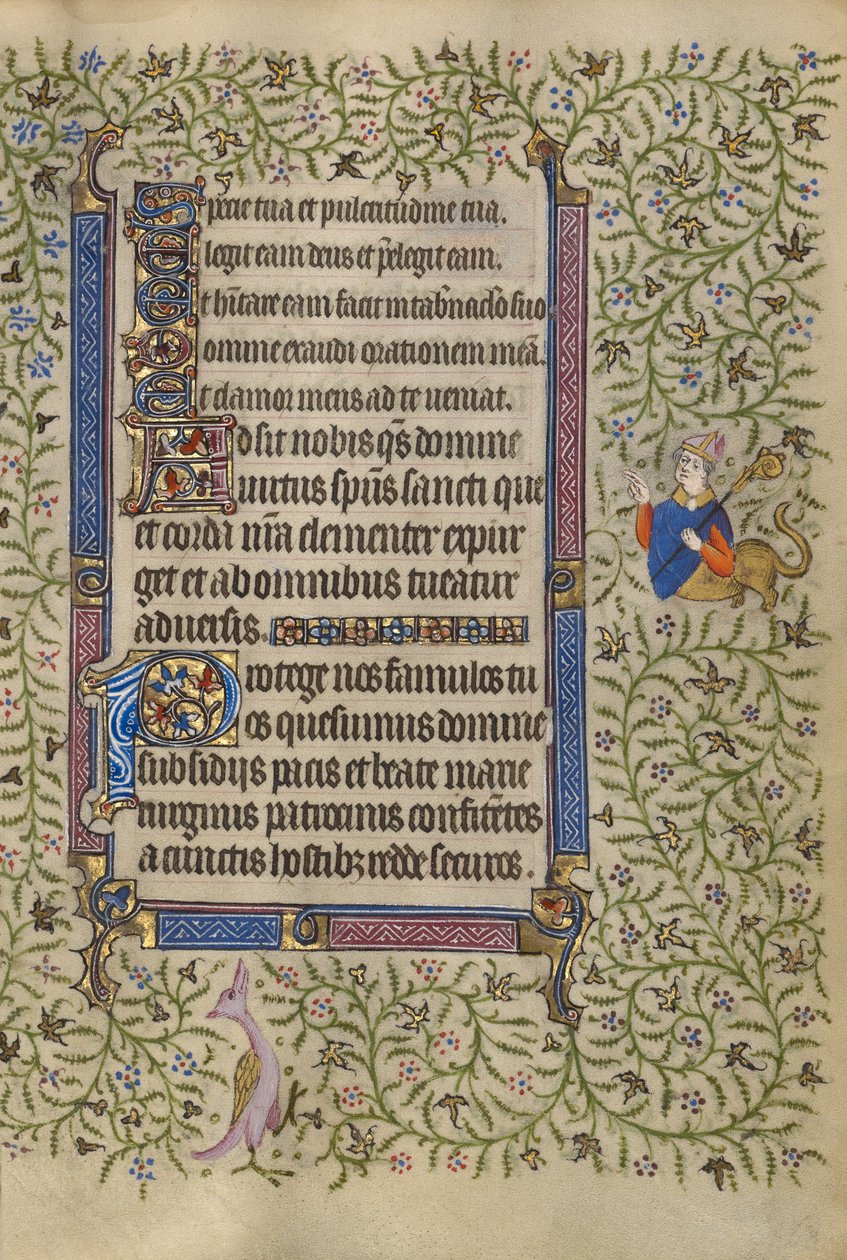 Specie tua et pulcritudine tua.
Elegit eam deus et p̄elegit eam.
Et h̄itare eam facit in tab̄nac̄lo suo
Domine exaudi orationem meā.
Et clamor meus ad te ueniat.
Adsit nobis q̄s domine
uirtus sp̄us sancti que
et corda n̄ra clementer expur
get et ab omnibus tueatur
aduersis.
Protege nos famulos tu
os quesumus domine
subsidijs pacis et beate marie
uirginis patrocinus confitētes
a cunctis hostibꝫ redde securos.